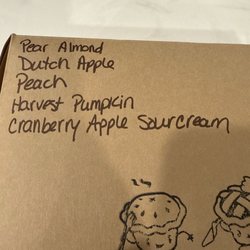 Pear Almond
Dutch Apple
Peach
Harvest Pumpkin
Cranberry Apple Sour Cream